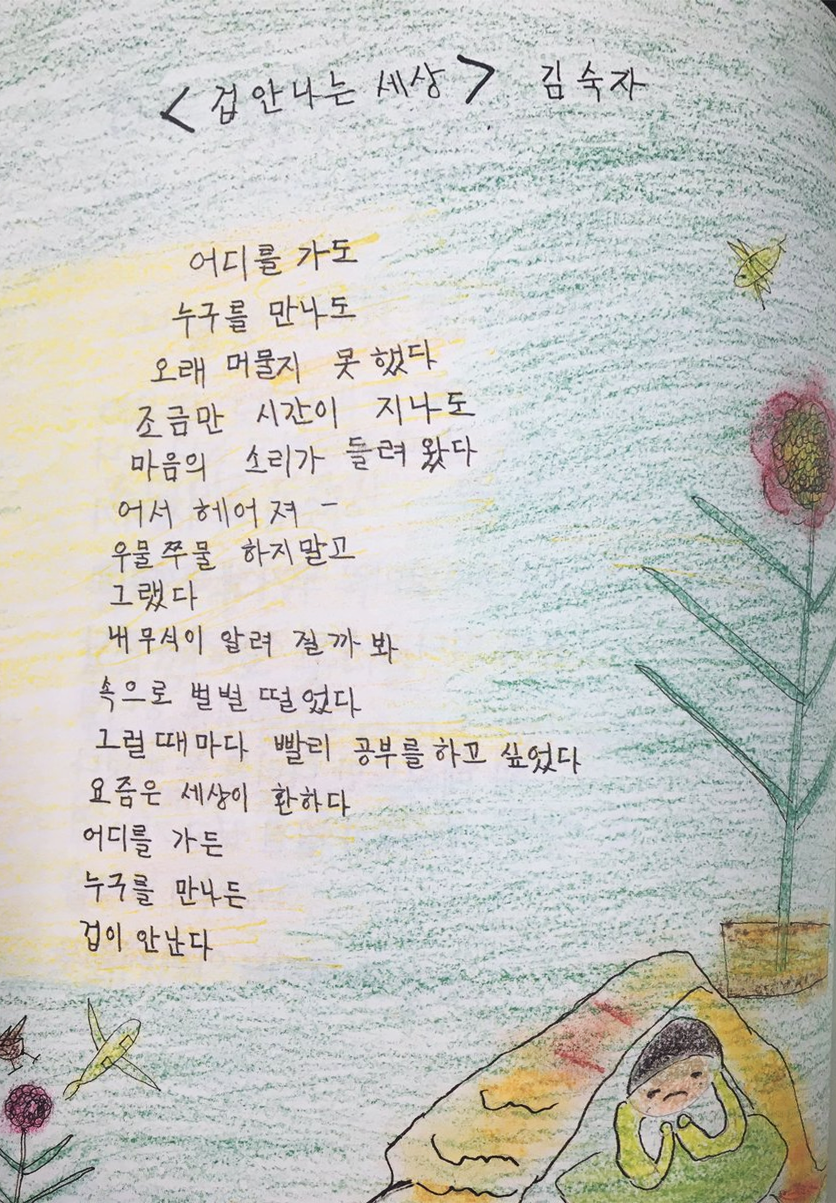 <겁 안나는 세상> 김숙자
어디를 가도
누구를 만나도
오래 머물지 못 했다
조금만 시간이 지나도
마음의 소리가 들려 왔다
어서 헤어져 -
우물쭈물 하지말고
그랬다
내 무식이 알려 질까 봐
속으로 벌벌 떨었다
그럴때마다 빨리 공부를 하고 싶었다
요즘은 세상이 환하다
어디를 가든
누구를 만나든
겁이 안난다